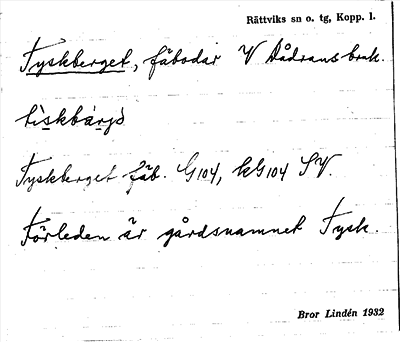 Rättviks sn o. tg, Kopp. l.
Tyskberget, fäbodar V Dådrans bruk.
tìskbàrjò
Tyskberget fäb. G104, kG104 SV.
Förleden är gårdsnamnet Tysk.
Bror Lindén 1932